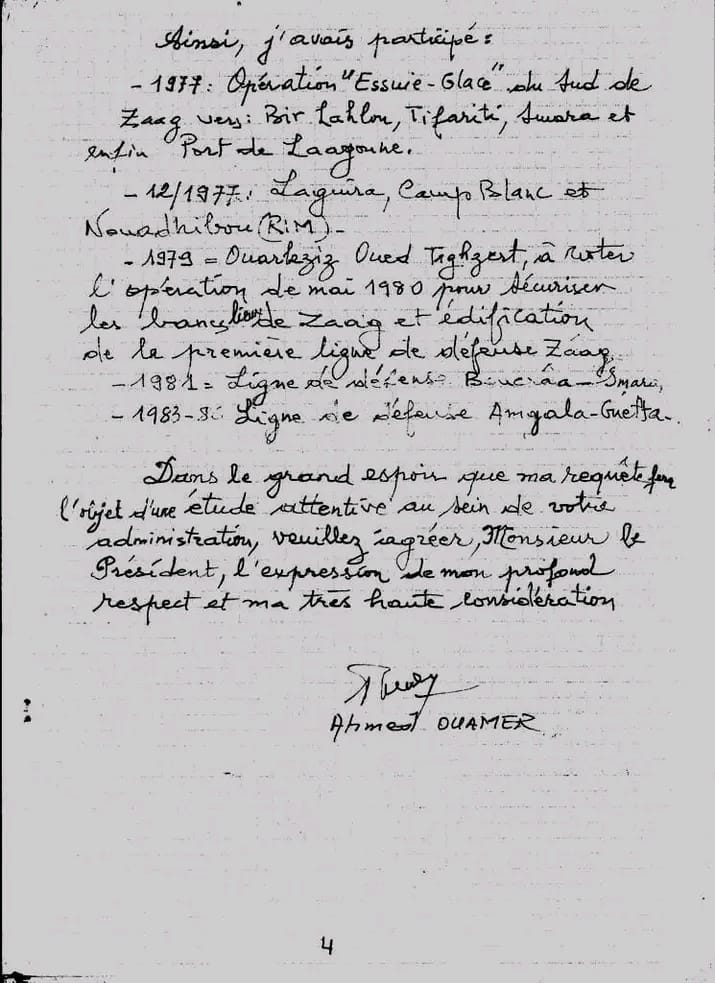 Ainsi, j'avais participé :
- 1977 : Opération "Essuie-Glace" du Sud de
Zaag vers : Bir Lahlou, Tifariti, Smara et
enfin Port de Laayoune.
- 12/1977 : Laguira, Camp Blanc et
Nouadhibou (RIM) -
- 1979 = Ouarkziz Oued Tighzert, à noter
l'opération de mai 1980 pour sécuriser
les banslieux de Zaag et édification
de la première ligne de défense Zaag
- 1981 = Ligne de défense Boucrâa - Smara,
- 1983-8 : Ligne de défense Amgala-Guelta -
Dans le grand espoir que ma requête fera
l'objet d'une étude attentive au sein de votre
administration, veuillez agréer, Monsieur le
Président, l'expression de mon profond
respect et ma très haute considération
Ahmed OUAMER
4